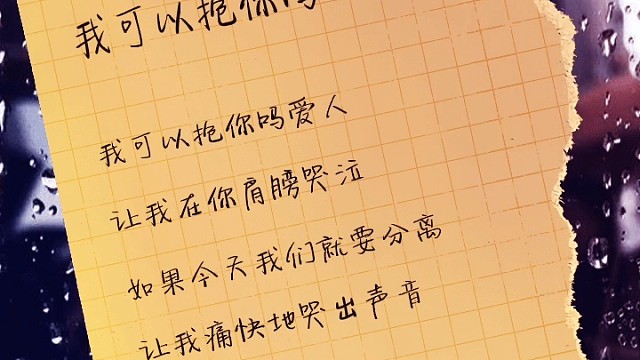 我可以抱你吗
我可以抱你吗爱人
让我在你肩膀哭泣
如果今天我们就要分离
让我痛快地哭出声音